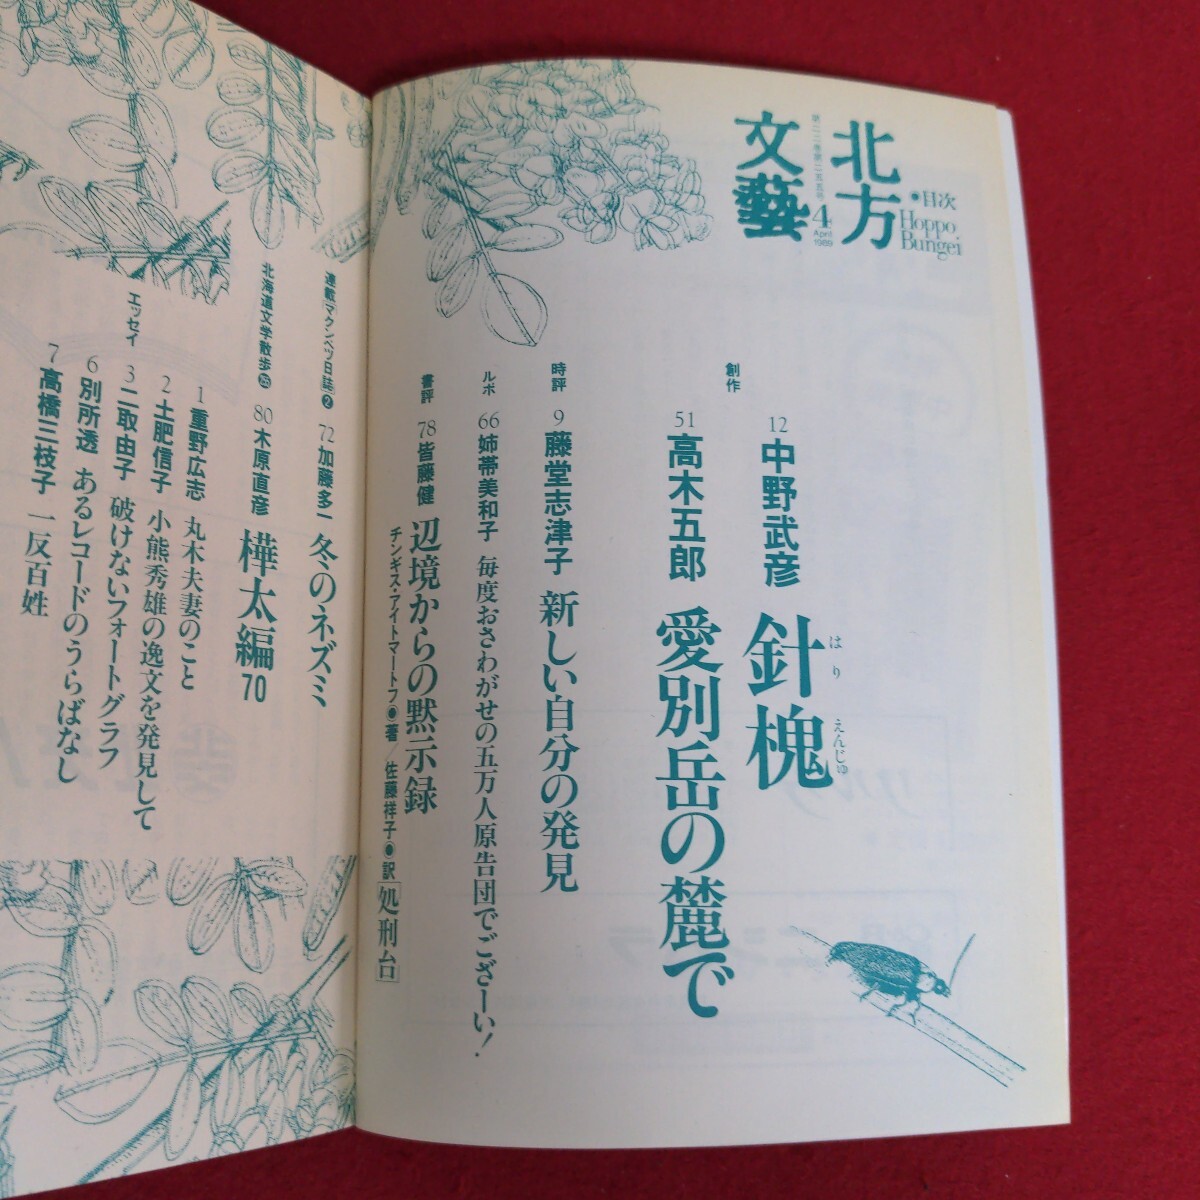 北方
文藝
・目次
Hoppo
Bungei
第二二巻第二五五号
4
April
1989
創作
12 中野武彦 針槐
はり えんじゅ
51 高木五郎 愛別岳の麓で
時評
9 藤堂志津子 新しい自分の発見
ルポ
66 姉帯美和子 毎度おさわがせの五万人原告団でござーい!
書評
78 皆藤健 辺境からの黙示録
チンギス・アイトマートフ●著/佐藤祥子●訳[処刑台]
連載 マクンベツ日誌❷
72 加藤多一 冬のネズミ
北海道文学散歩
80 木原直彦 樺太編70
エッセイ
1 重野広志 丸木夫妻のこと
2 土肥信子 小熊秀雄の逸文を発見して
3 二取由子 破けないフォートグラフ
6 別所透 あるレコードのうらばなし
7 高橋三枝子 一反百姓